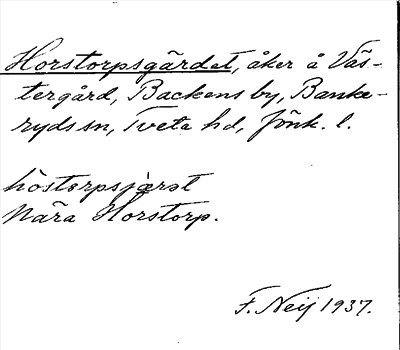 Horstorpsgärdet, åker å Väs-
tergård, Backens by, Banke-
ryds sn, Tveta hd, Jönk. l.
hòstɔrpsjæ̀rət
Nära Horstorp.
F. Neij 1937.